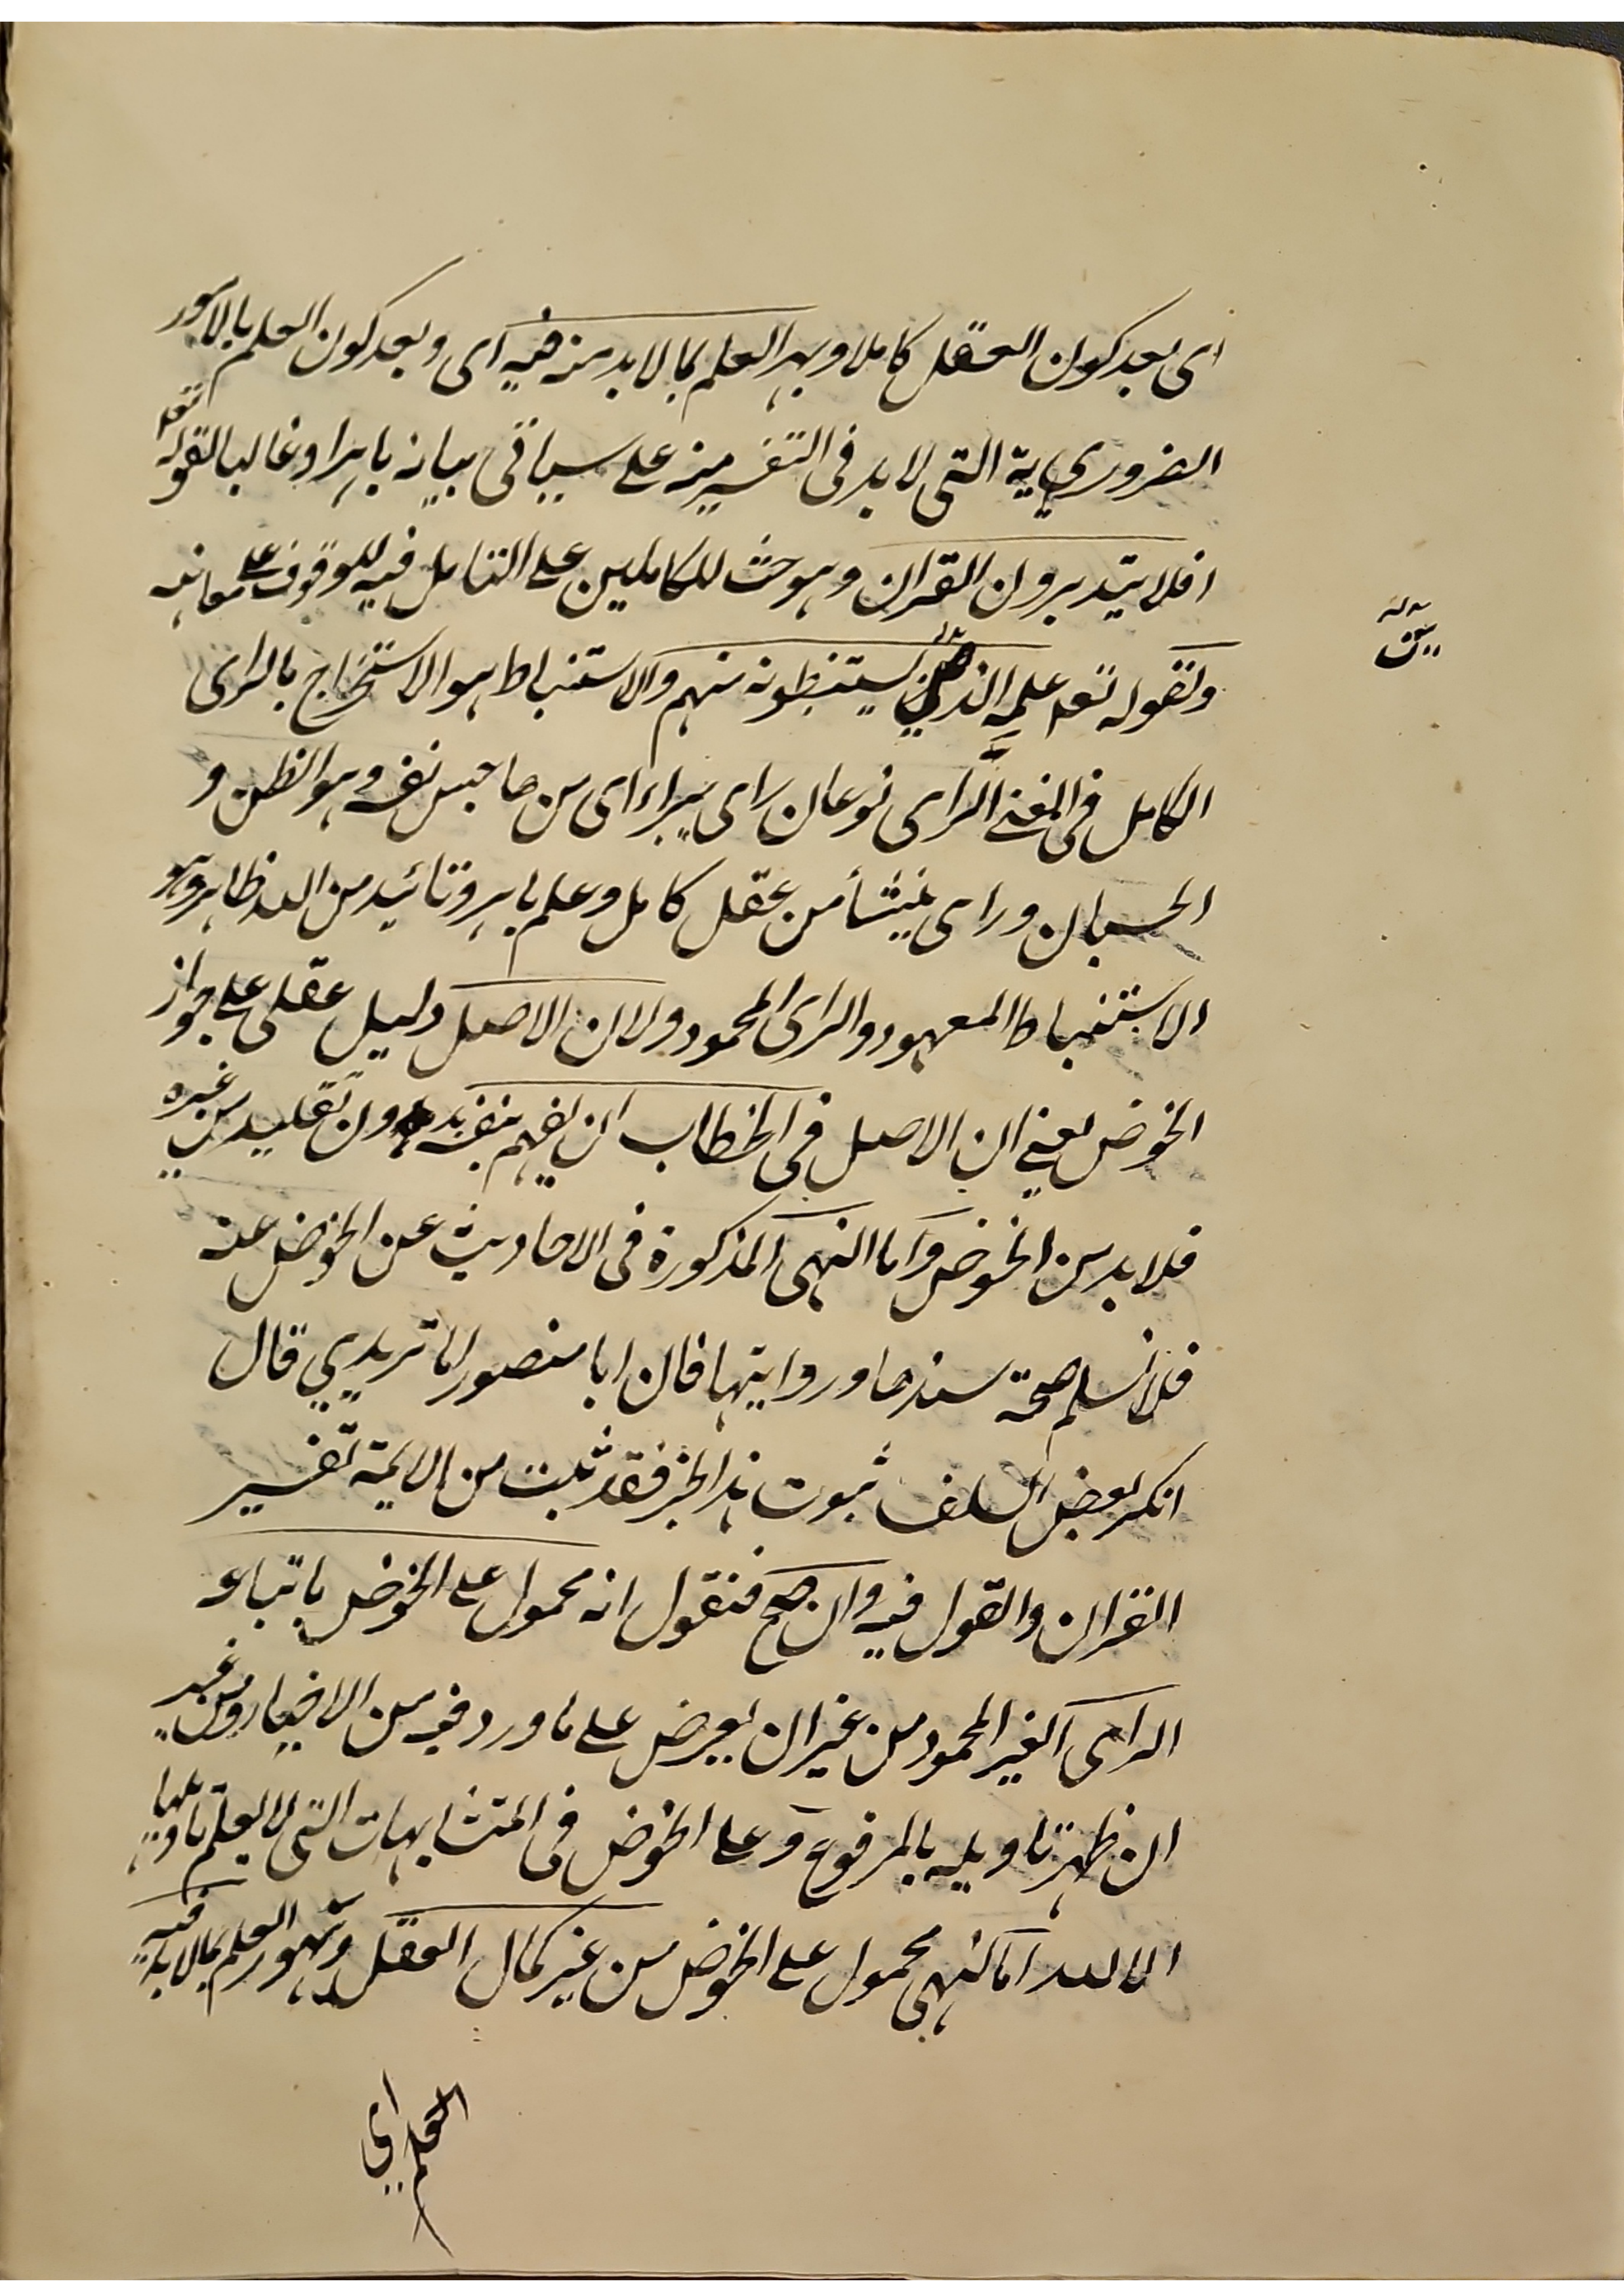 اى بعد كون العقل كاملا وبهر العلم بما لا بد منه فيه اى وبعد كون العلم بالامور
الضرورية التى لا بد فى التفسير منه على سياقى بيانه باهرا وغالبا لقوله تعه
افلا يتدبرون القران وهو حث للكاملين على التامل فيه للوقوف على معانيه
ولقوله تعه لعلمه الذين يستنبطونه منهم والاستنباط هو الاستخراج بالراى
الكامل فى المغنى الراى نوعان راى يراء اى من هاجس نفسه وهو الظن و
الحسبان وراى ينشأ من عقل كامل وعلم باهر وتائيد من الله ظاهر وهو
الاستنباط المعهود والراى المحمود ولان الاصل دليل عقلى على جواز
الخوض يعنى ان الاصل فى الخطاب ان يفهم بنفسه بدون تقليد من غيره
فلا بد من الخوض واما النهى المذكورة فى الاحاديث عن الخوض عنه
فلا نسلم صحة سندها وروايتها فان ابا منصور الماتريدي قال
انكر بعض السلف ثبوت هذا الخبر فقد ثبت من الائمة تفسير
القران والقول فيه وان صح فنقول انه محمول على الخوض باتباعه
الراى الغير المحمود من غير ان يعرض على ما ورد فيه من الاخبار ومن غير
ان ظهر تاويله بالمرفوع وعلى الخوض فى المتشابهات التى لا يعلم تاويلها
الا الله اما النهى محمول على الخوض من غير كمال العقل وبهور العلم بما لا بد فيه
العلم اى